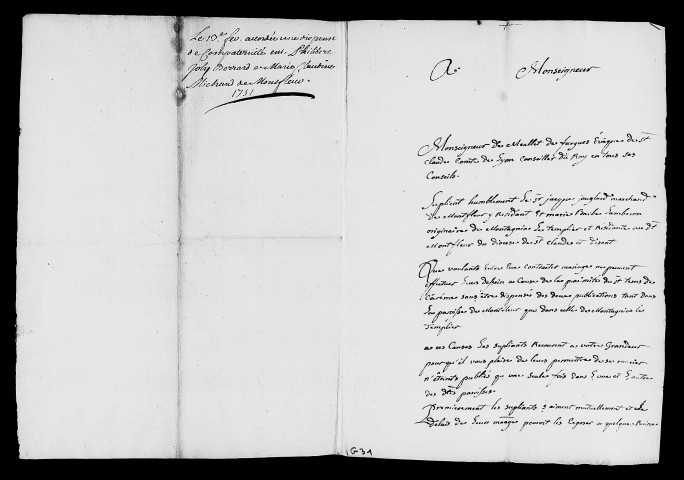 Le 13e fev. accordée une dispense
de Compaternité entre Philibert
Joly Berrard et Marie Claudine
Michaud de Monfleur.
1751
A Monseigneur
Monseigneur De Meallet de fargues Evêque de St
claude Comte de Lyon Conseiller du Roy en tous ses
Conseils.
Suplient humblement le Sr jacque jouglard marchand
de Montfleur y Residant et marie Barbe
originaire de Montagnias les templier et Residante au dt
Montfleur du diocese de St claude et disent
Que voulants Entre Eux contracter mariage ne peuvent
effectuer Leurs dessein a Cause de la proximité du st tems de
Carême sans être dispensés des deux publications tant dans
La paroisse de Montfleur que dans celle de Montagnias le
templier
a ces Causes Les supliants Recourent a votre Grandeur
pour qu'il vous plaise de leurs permettre de se marier
n'étants publiés qu'une seule fois dans L'une et L'autre
des dts paroisses.
Premierement les supliants s'aiment mutuellement et le
Délais de Leurs mariage pouroit les Exposer a quelque
G31